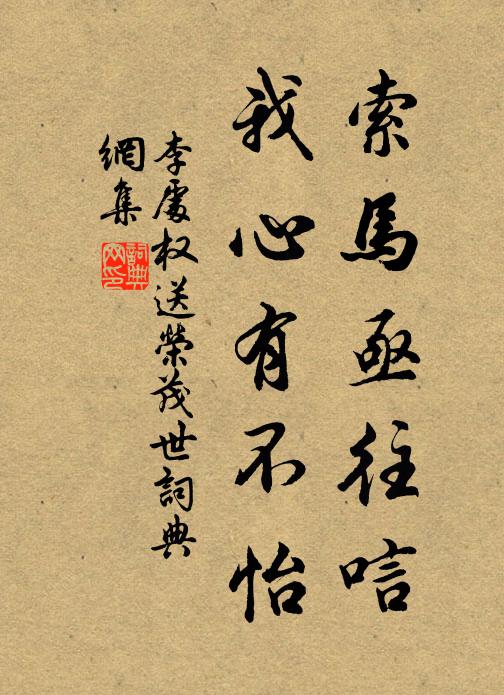 索馬亟往唁
我心有不怡
李處权送榮茂世詞典
網集
詞典
网印